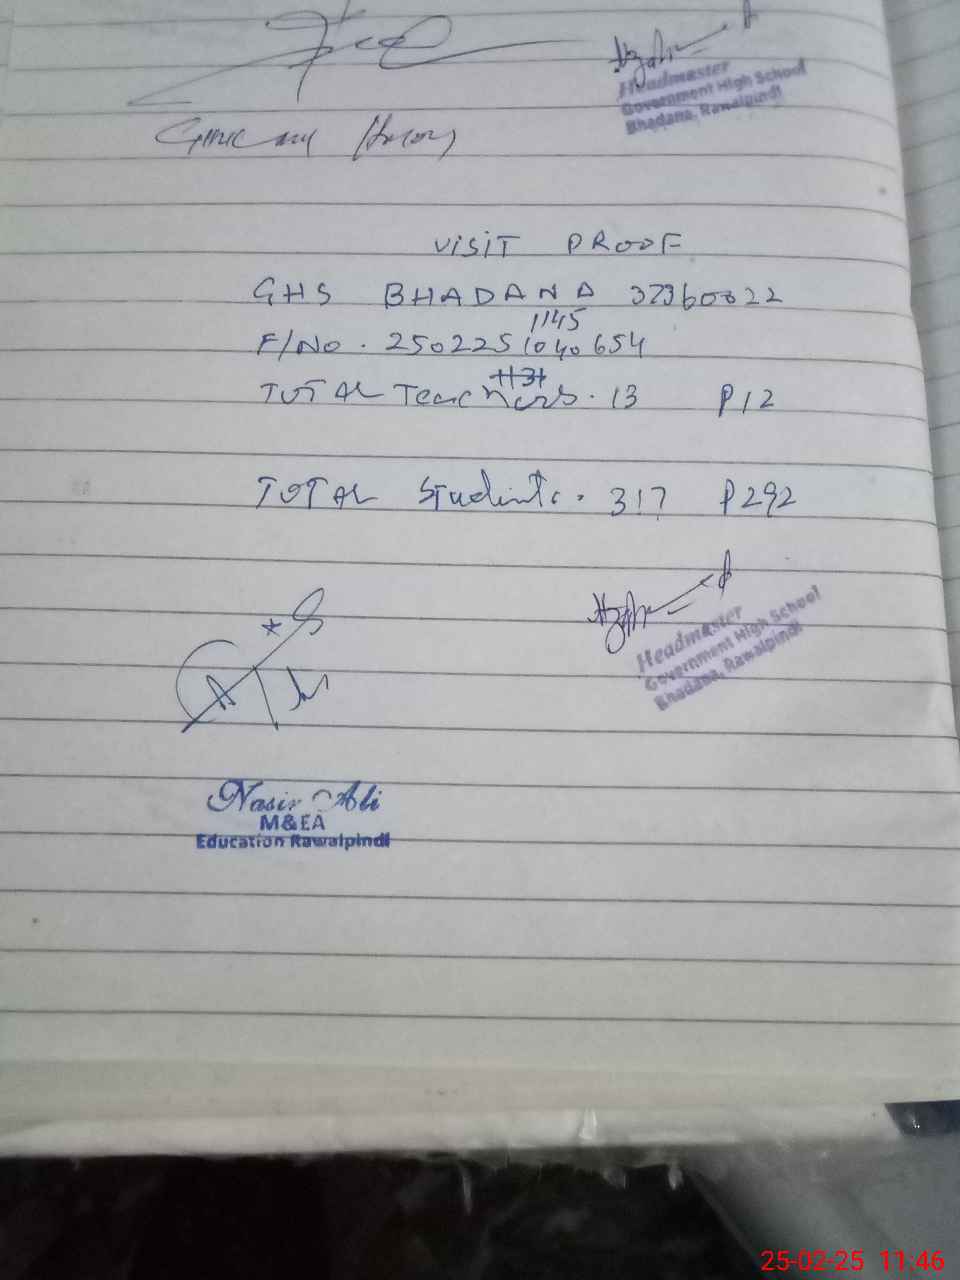 Headmaster
Government High School
Bhadana, Rawalpindi
VISIT PROOF
GHS BHADANA 37360022
1145
F/No. 2502251040654
1131
TOTAL Teachers. 13 P12
TOTAL Students. 317 P292
Headmaster
Government High School
Bhadana, Rawalpindi
Nasir Ali
M&EA
Education Rawalpindi
25-02-25 11:46